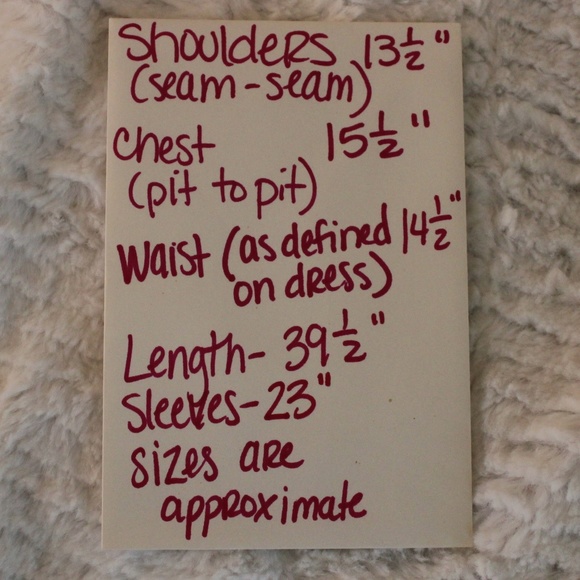 Shoulders 13 1/2"
(seam-seam)
Chest 15 1/2"
(pit to pit)
Waist (as defined 14 1/2"
on dress)
Length- 39 1/2"
Sleeves-23"
sizes are
approximate